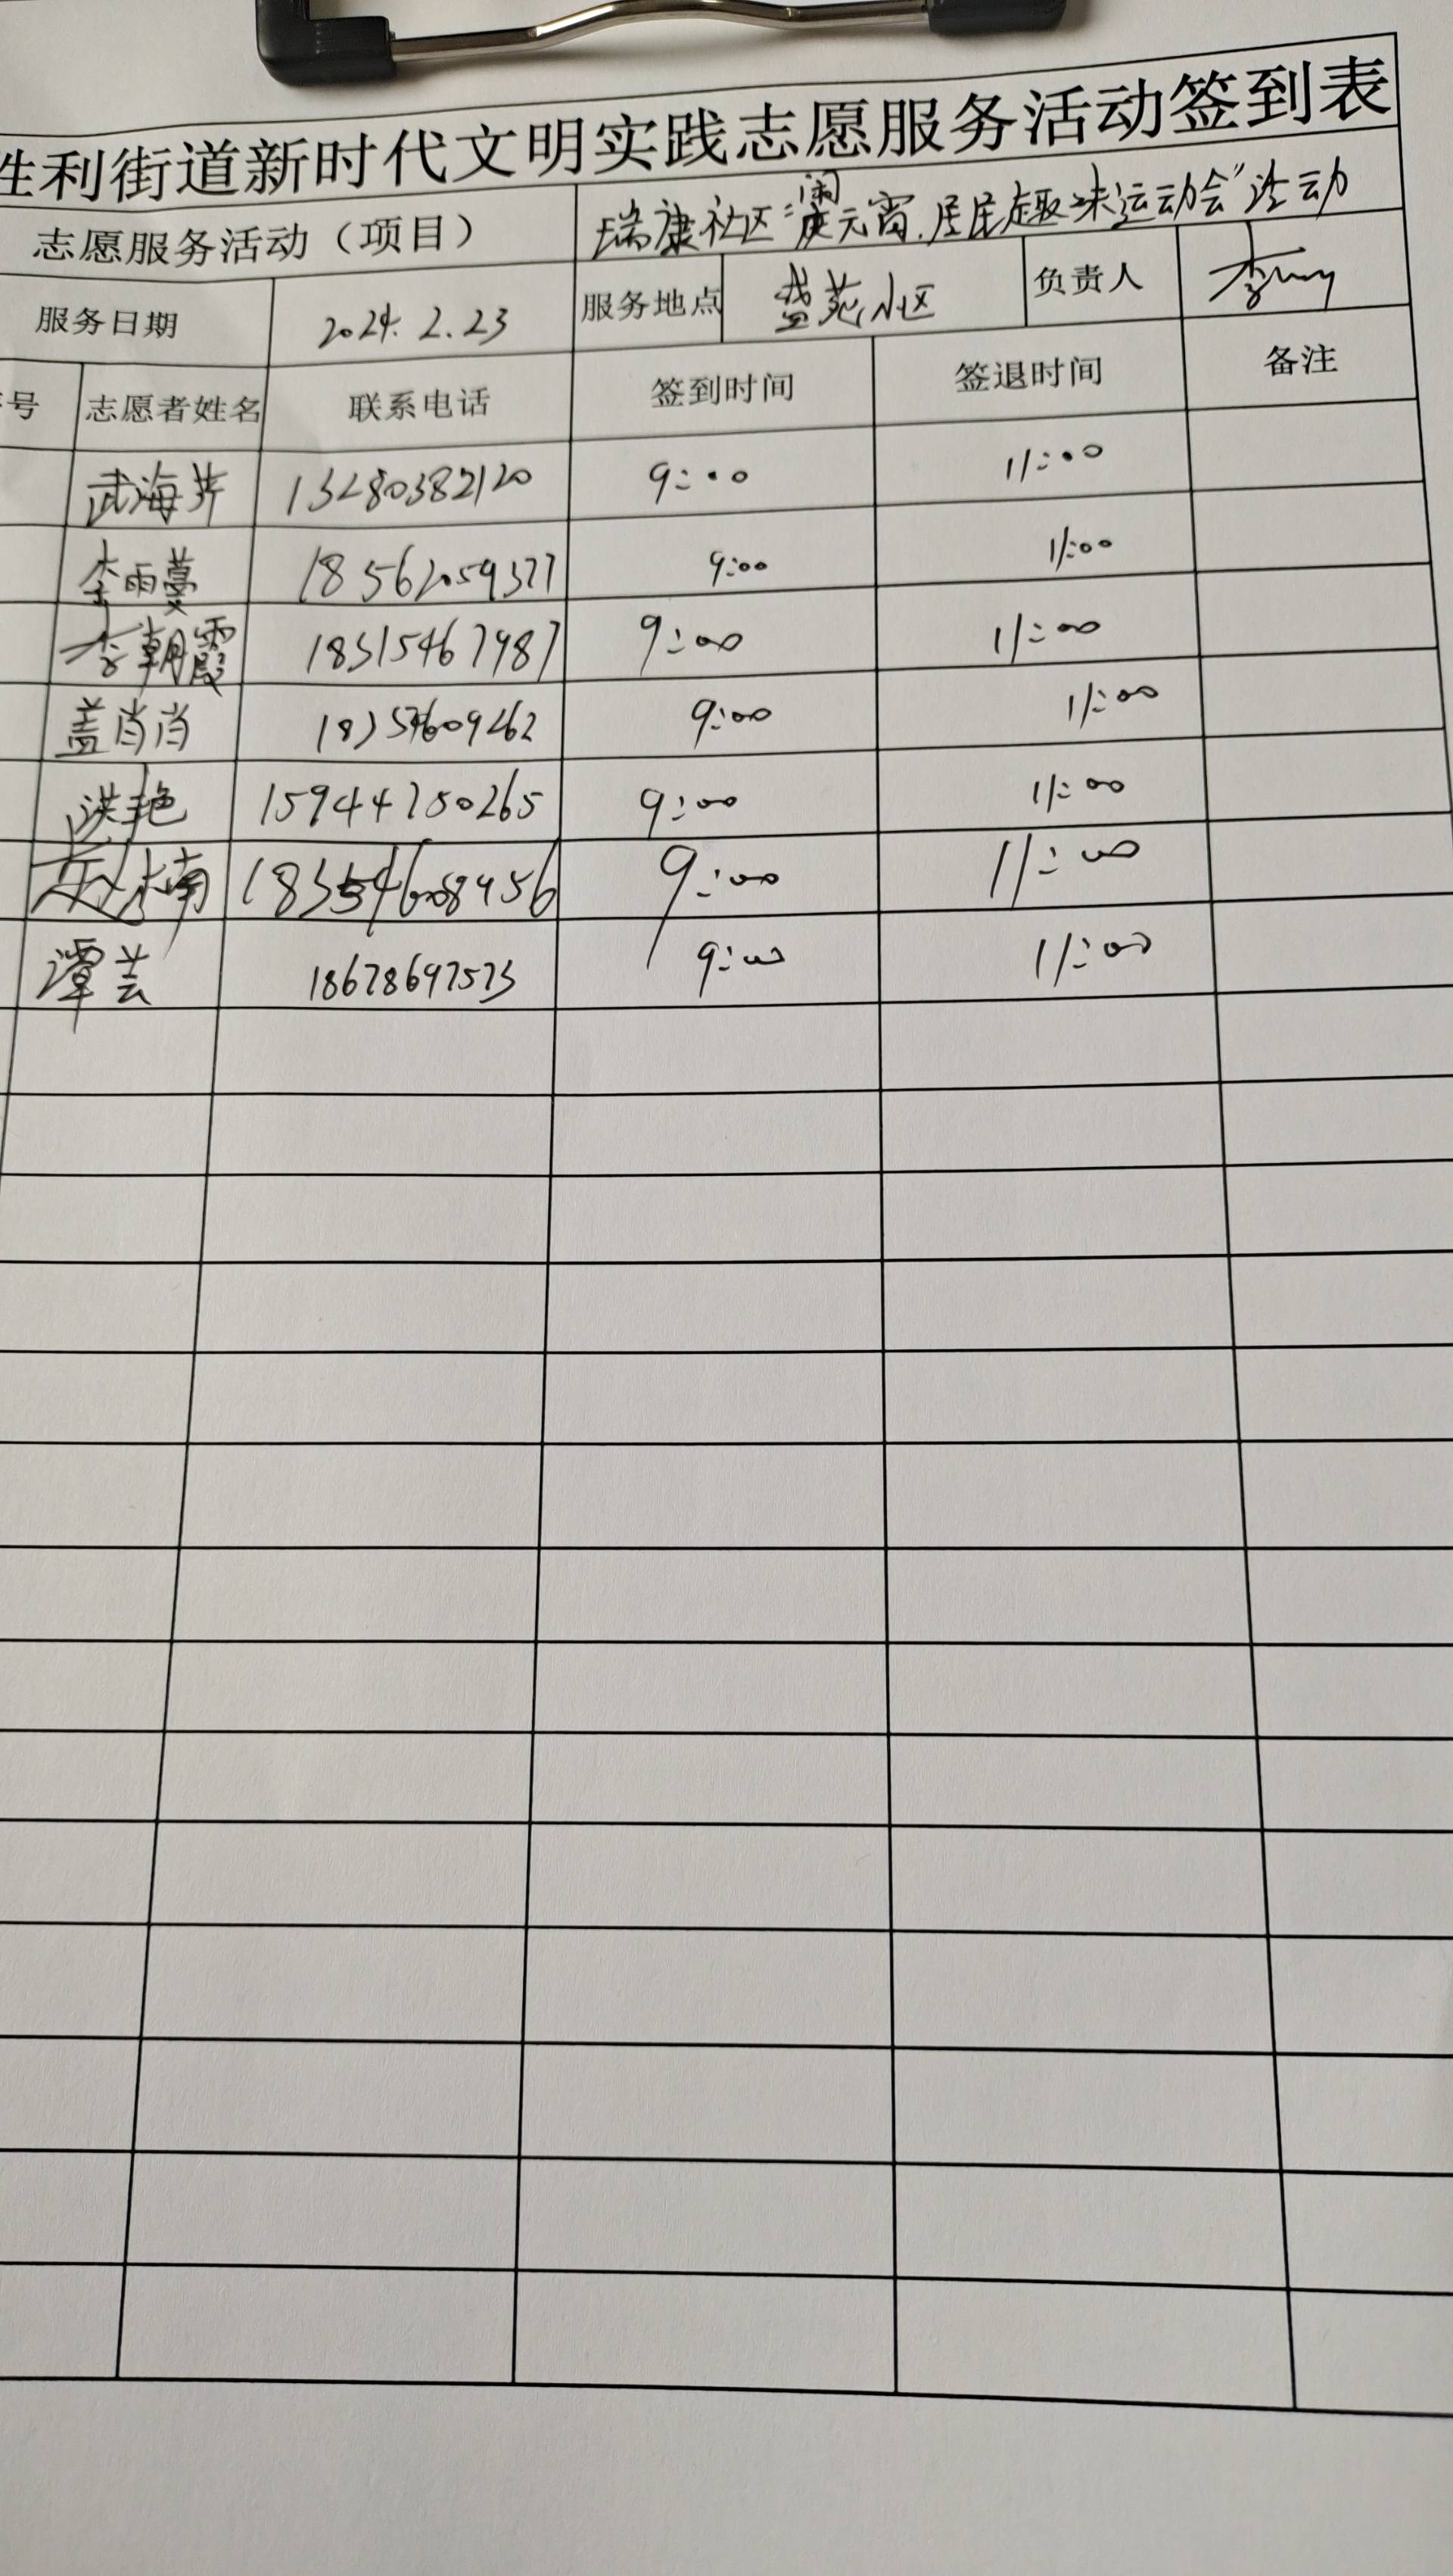 胜利街道新时代文明实践志愿服务活动签到表
志愿服务活动（项目） 瑞康社区"闹元宵.居民趣味运动会"活动
服务日期 2024.2.23 服务地点 盛苑小区 负责人
号 志愿者姓名 联系电话 签到时间 签退时间 备注
武海芹 13280382120 9:00 11:00
李雨蔓 18562059377 9:00 11:00
李朝霞 18315467987 9:00 11:00
盖肖肖 18354609262 9:00 11:00
洪艳 15944750265 9:00 11:00
18354608456 9:00 11:00
潭芸 18678697573 9:00 11:00